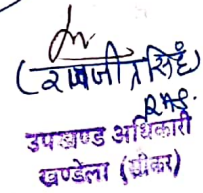 (रामजीत सिंह)
RAS.
उपखण्ड अधिकारी
खण्डेला (सीकर)